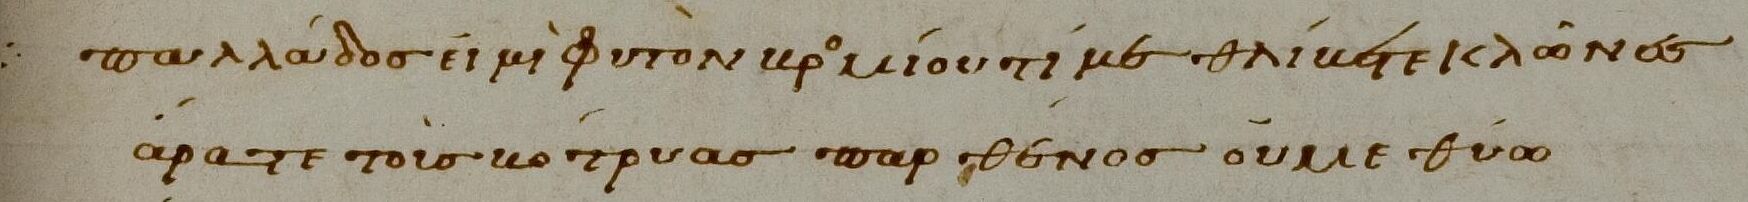 παλλάδος εἰμὶ φυτὸν κρομίου τί με θλίκετε κλῶνες
ἄρατε τοὶς κότρυας παρθένος οὐ μεθύω